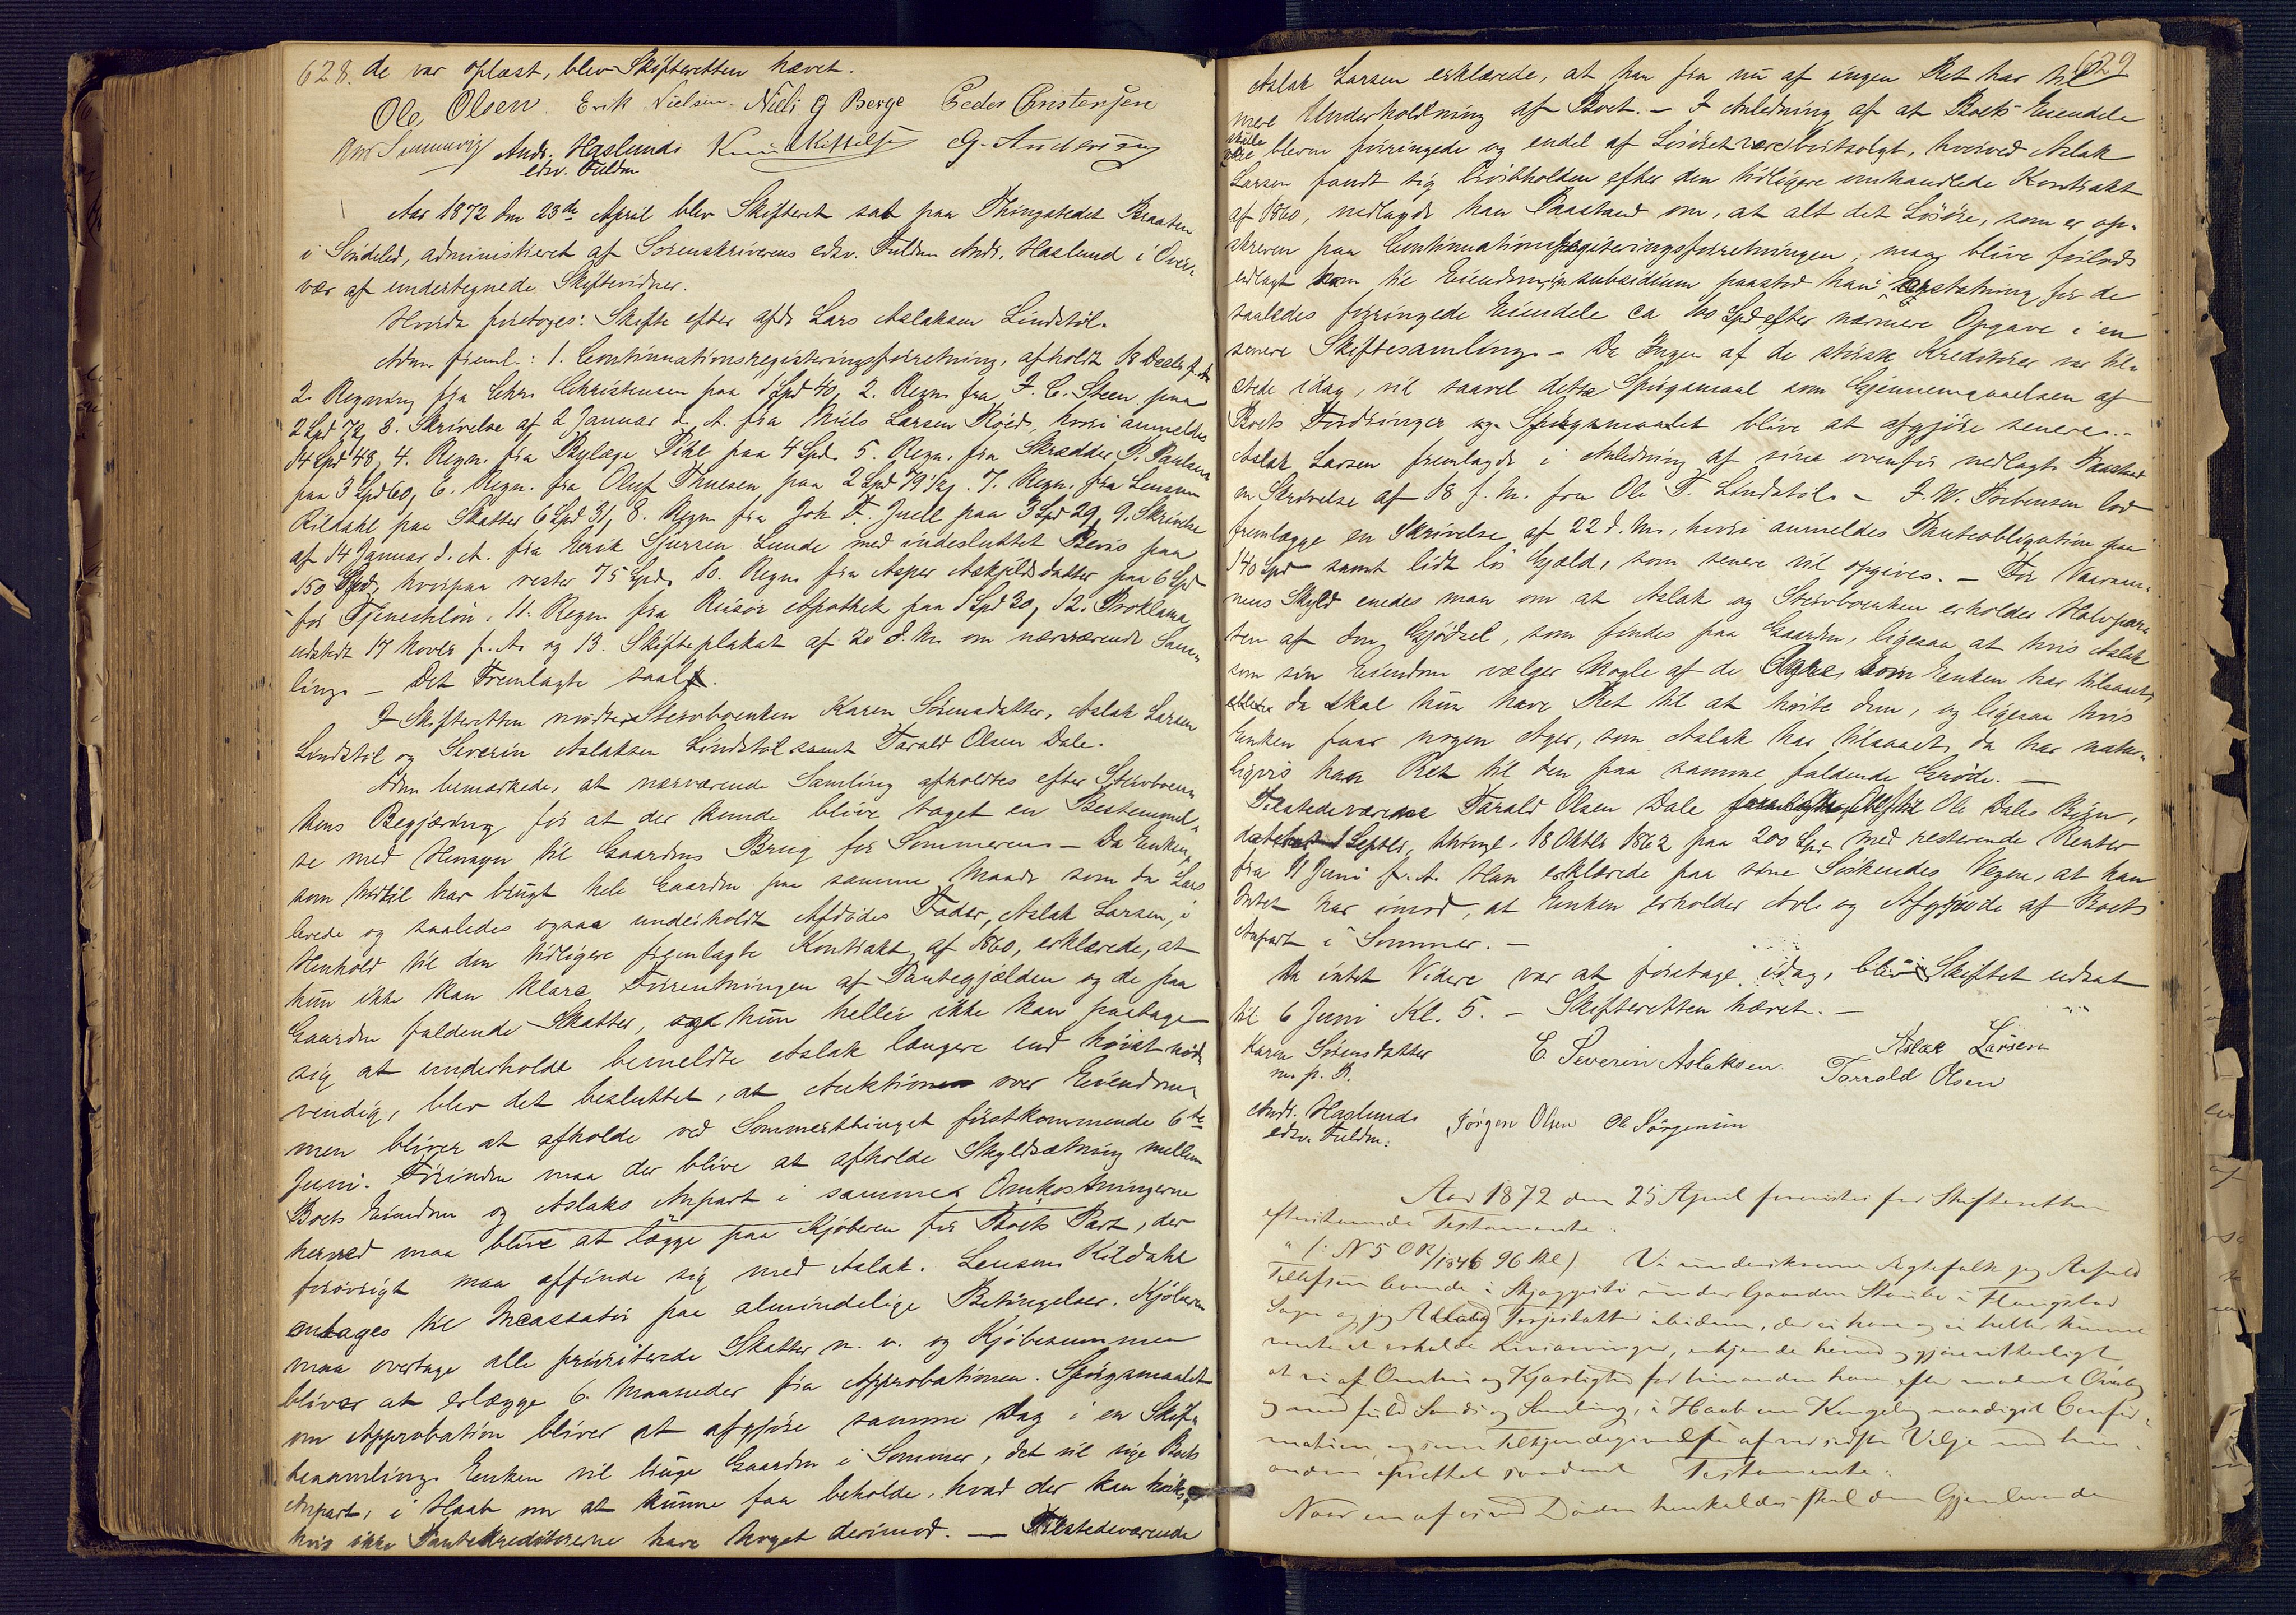 628. de var oplæst, blev Skifteretten hævet.
Ole Olsen. Erik Nielsen. Niels G Berge Peder Christensen
Andr. Haslund Knud Kittelsen G. Andersen
edsv. Fuldm
Aar 1872 den 23de April blev Skifteret sat paa Thingstedet Braaten
i Söndeled, administreret af Sorenskriverens edsv. Fuldm Andr. Haslund i Over-
vær af undertegnede Skiftevidner.
Hvorda foretoges: Skifte efter afdø Lars Aslaksen Lindstöl.
Adm. freml.: 1. Continuationsregistreringsforretning, afholdt 18 Decbr f. A.
2. Regning fra Chr. Christensen paa 1 Spd 40, 2. Regn. fra J. C. Steen paa
2 Spd 72, 3. Skrivelse af 2 Januar d. A. fra Niels Larsen Röed, hvori anmeldes
14 Spd 48, 4. Regn. fra Dyrlæge Pihl paa 4 Spd. 5. Regn. fra Skrædder P. Paulsen
paa 3 Spd 60, 6. Regn. fra Oluf Thuesen paa 2 Spd 79 1/2, 7. Regn. fra Lensm
Kildahl paa Skatter 6 Spd 31, 8. Regn fra Joh. F. Juell paa 3 Spd 29, 9. Skrivelse
af 14 Januar d. A. fra Erik Sjursen Lunde med indesluttet Bevis paa
150 Spd, hvorpaa rester 75 Spd, 10. Regn. fra Asper Askjildsdatter paa 6 Spd
for Tjenestelön, 11. Regn fra Risör Apothek paa 1 Spd 30, 12. Proklama,
udstedt 17 Novbr f. A. og 13. Skifteplakat af 20 d. M. om nærværende Sam-
ling. – Det Fremlagte saal.
I Skifteretten mødte Stervboenken Karen Sörensdatter, Aslak Larsen
Lindstöl og Severin Aslaksen Lindstöl samt Tarald Olsen Dale.
Adm bemærkede, at nærværende Samling afholdtes efter Stervboen-
kens Begjæring for at der kunde blive taget en Bestemmel-
se med Hensyn til Gaardens Brug for Sommeren – Da Enken,
som hidtil har brugt hele Gaarden paa samme Maade som da Lars
levede og saaledes ogsaa underholdt Afdödes Fader, Aslak Larsen, i
Henhold til den tidligere fremlagte Kontrakt af 1860, erklærede, at
hun ikke kan klare Forrentningen af Pantegjælden og de paa
Gaarden faldende Skatter, og hun heller ikke kan paatage
sig at underholde bemeldte Aslak længere end höist nöd-
vendig, blev det besluttet, at Auktion over Eiendom-
men bliver at afholde ved Sommerthinget förstkommende 6te
Juni. Forinden maa der blive at afholde Skyldsætning mellem
Boets Eiendom og Aslaks Anpart i samme. Omkostningerne
herved maa blive at lægge paa Kjöberen for Boets Part, der
forövrigt maa affinde sig med Aslak. Lensm. Kildahl
antages til Incassator paa almindelige Betingelser. Kjöberen
maa overtage alle prioriterede Skatter m. v. og Kjöbesummen
bliver at erlægge 6 Maaneder fra Approbationen. Spörgsmaalet
om Approbation bliver at afgjöre samme Dag i en Skif-
tesamling. Enken vil bruge Gaarden i Sommer, det vil sige Boets
Anpart, i Haab om at kunne faa beholde, hvad der kan höstes,
hvis ikke Pantekreditorerne have Noget derimod. — Tilstedeværende
629
Aslak Larsen erklærede, at han fra nu af ingen Ret har til
mere Underholdning af Boet. – I Anledning af at Boets Eiendele
skulle blevne forringede og endel af Lösöret være bortsolgt, hvorved Aslak
Larsen fandt sig brösthölden efter den tidligere omhandlede Kontrakt
af 1860, nedlagde han Paastand om, at alt det Lösöre, som er op-
skreven paa Continuationsregistreringsforretningen, maa blive
udlagt ham til Eiendom, in subsidium paastod han Erstatning for de
saaledes forringede Eiendele ca 100 Spd efter nærmere Opgave i en
senere Skiftesamling. – Da Ingen af de störste Kreditorer var til-
stede idag, vil saavel dette Spörgsmaal som Gjennemgaaelsen af
Boets Fordringer og Spörgsmaalet blive at afgjöre senere. –
Aslak Larsen fremlagde i Anledning af sine ovenfor nedlagte Paastand
en Skrivelse af 18 f. M. fra Ole T. Lindstöl. – F. W. Torbensen lod
fremlægge en Skrivelse af 22 d. M., hvori anmeldes Panteobligation paa
140 Spd samt lidt lös Gjæld, som senere vil opgives. – For Vaaraan-
nens Skyld enedes man om at Aslak og Stervboenken erholder Halvpar-
ten af den Gjödsel, som findes paa Gaarden, ligesaa at hvis Aslak
som sin Eiendom vælger Nogle af de Agre, som Enken har tilsaaet,
da skal hun have Ret til at höste dem, og ligesaa hvis
Enken faar nogen Ager, som Aslak har tilsaaet, da har natur-
ligvis han Ret til den paa samme faldende Gröde. —
Tilstedeværende Tarald Olsen Dale til Ole Dales Börn,
dateret 1 Septbr, thingl. 18 Oktbr 1862 paa 200 Spd med resterende Renter
fra 11 Juni f. A. Han erklærede paa sine Söskendes Vegne, at han
Intet har imod, at Enken erholder Avl og Afgröde af Boets
Anpart i Sommer. –
Da intet Videre var at foretage idag, blev Skiftet udsat
til 6 Juni Kl. 5. – Skifteretten hævet. –
Karen Sörensdatter C. Severin Aslaksen. Aslak Larsen
m. p. P. Tarrald Olsen
Andr. Haslund Jørgen Olsen Ole Jørgensen
edsv. Fuldm.
Aar 1872 den 25 April for Skifteretten
efterstaaende Testamente:
96 Skl) Vi underskrevne Ægtefolk jeg
Tellefsen boende i Skjeggesti under Gaarden i
Sogn og jeg Terjesdatter ibidem, der ei have og ei heller kunne
vente at erholde Livsarvinger, erkjende herved og gjøre vitterligt
at vi af Omhu og Kjærlighed for hinanden have efter modent Overlæg
og med fuld Sands og Samling, i Haab om Kongelig naadigst Confir-
mation, og som Tilkjendegivelse af vor sidste Vilje med hin-
anden oprettet saadant Testamente:
Naar en af os ved Döden henkaldes skal den Gjenlevende